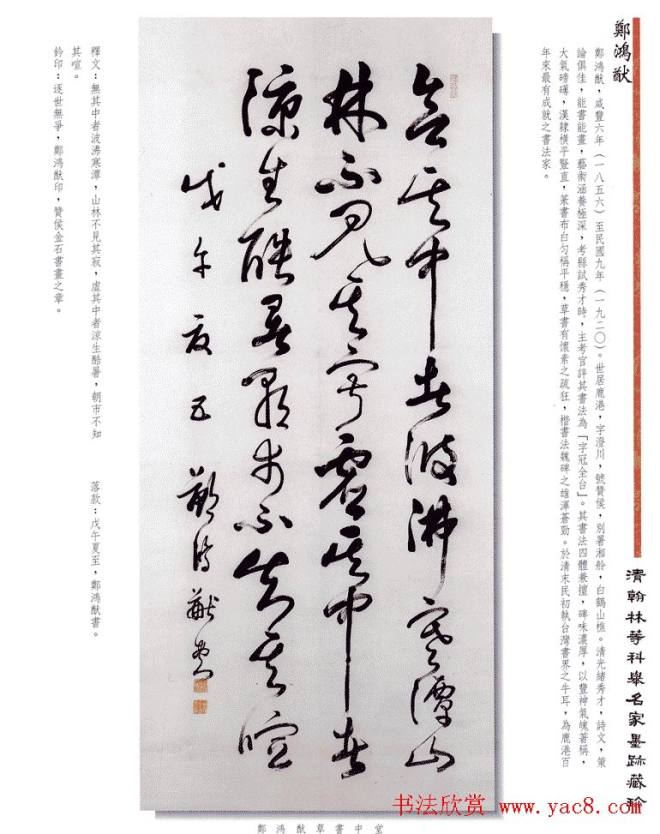 鄭鴻猷
鄭鴻猷，咸豐六年（一八五六）至民國九年（一九二〇）。世居鹿港，字澄川，號贊侯，別署湘舲，白鶴山樵。清光緒秀才，詩文，策
論俱佳，能書能畫，藝術涵養極深，考縣試秀才時，主考官評其書法為「字冠全台」。其書法四體兼擅，碑味濃厚，以豐神氣魄著稱，
大氣磅礡，漢隸橫平豎直，篆書布白勻稱平穩，草書有懷素之疏狂，楷書法魏碑之雄渾蒼勁。於清末民初執台灣書界之牛耳，為鹿港百
年來最有成就之書法家。
清翰林等科舉名家墨跡藏珍
無其中者波沸寒潭山
林不見其寂虛其中者
涼生酷暑朝市不知其喧
戊午夏至 鄭鴻猷書
釋文：無其中者波沸寒潭，山林不見其寂，虛其中者涼生酷暑，朝市不知
其喧。
落款：戊午夏至，鄭鴻猷書。
鈐印：逐世無爭，鄭鴻猷印，贊侯金石書畫之章。
鄭鴻猷草書中堂
书法欣赏 www.yac8.com